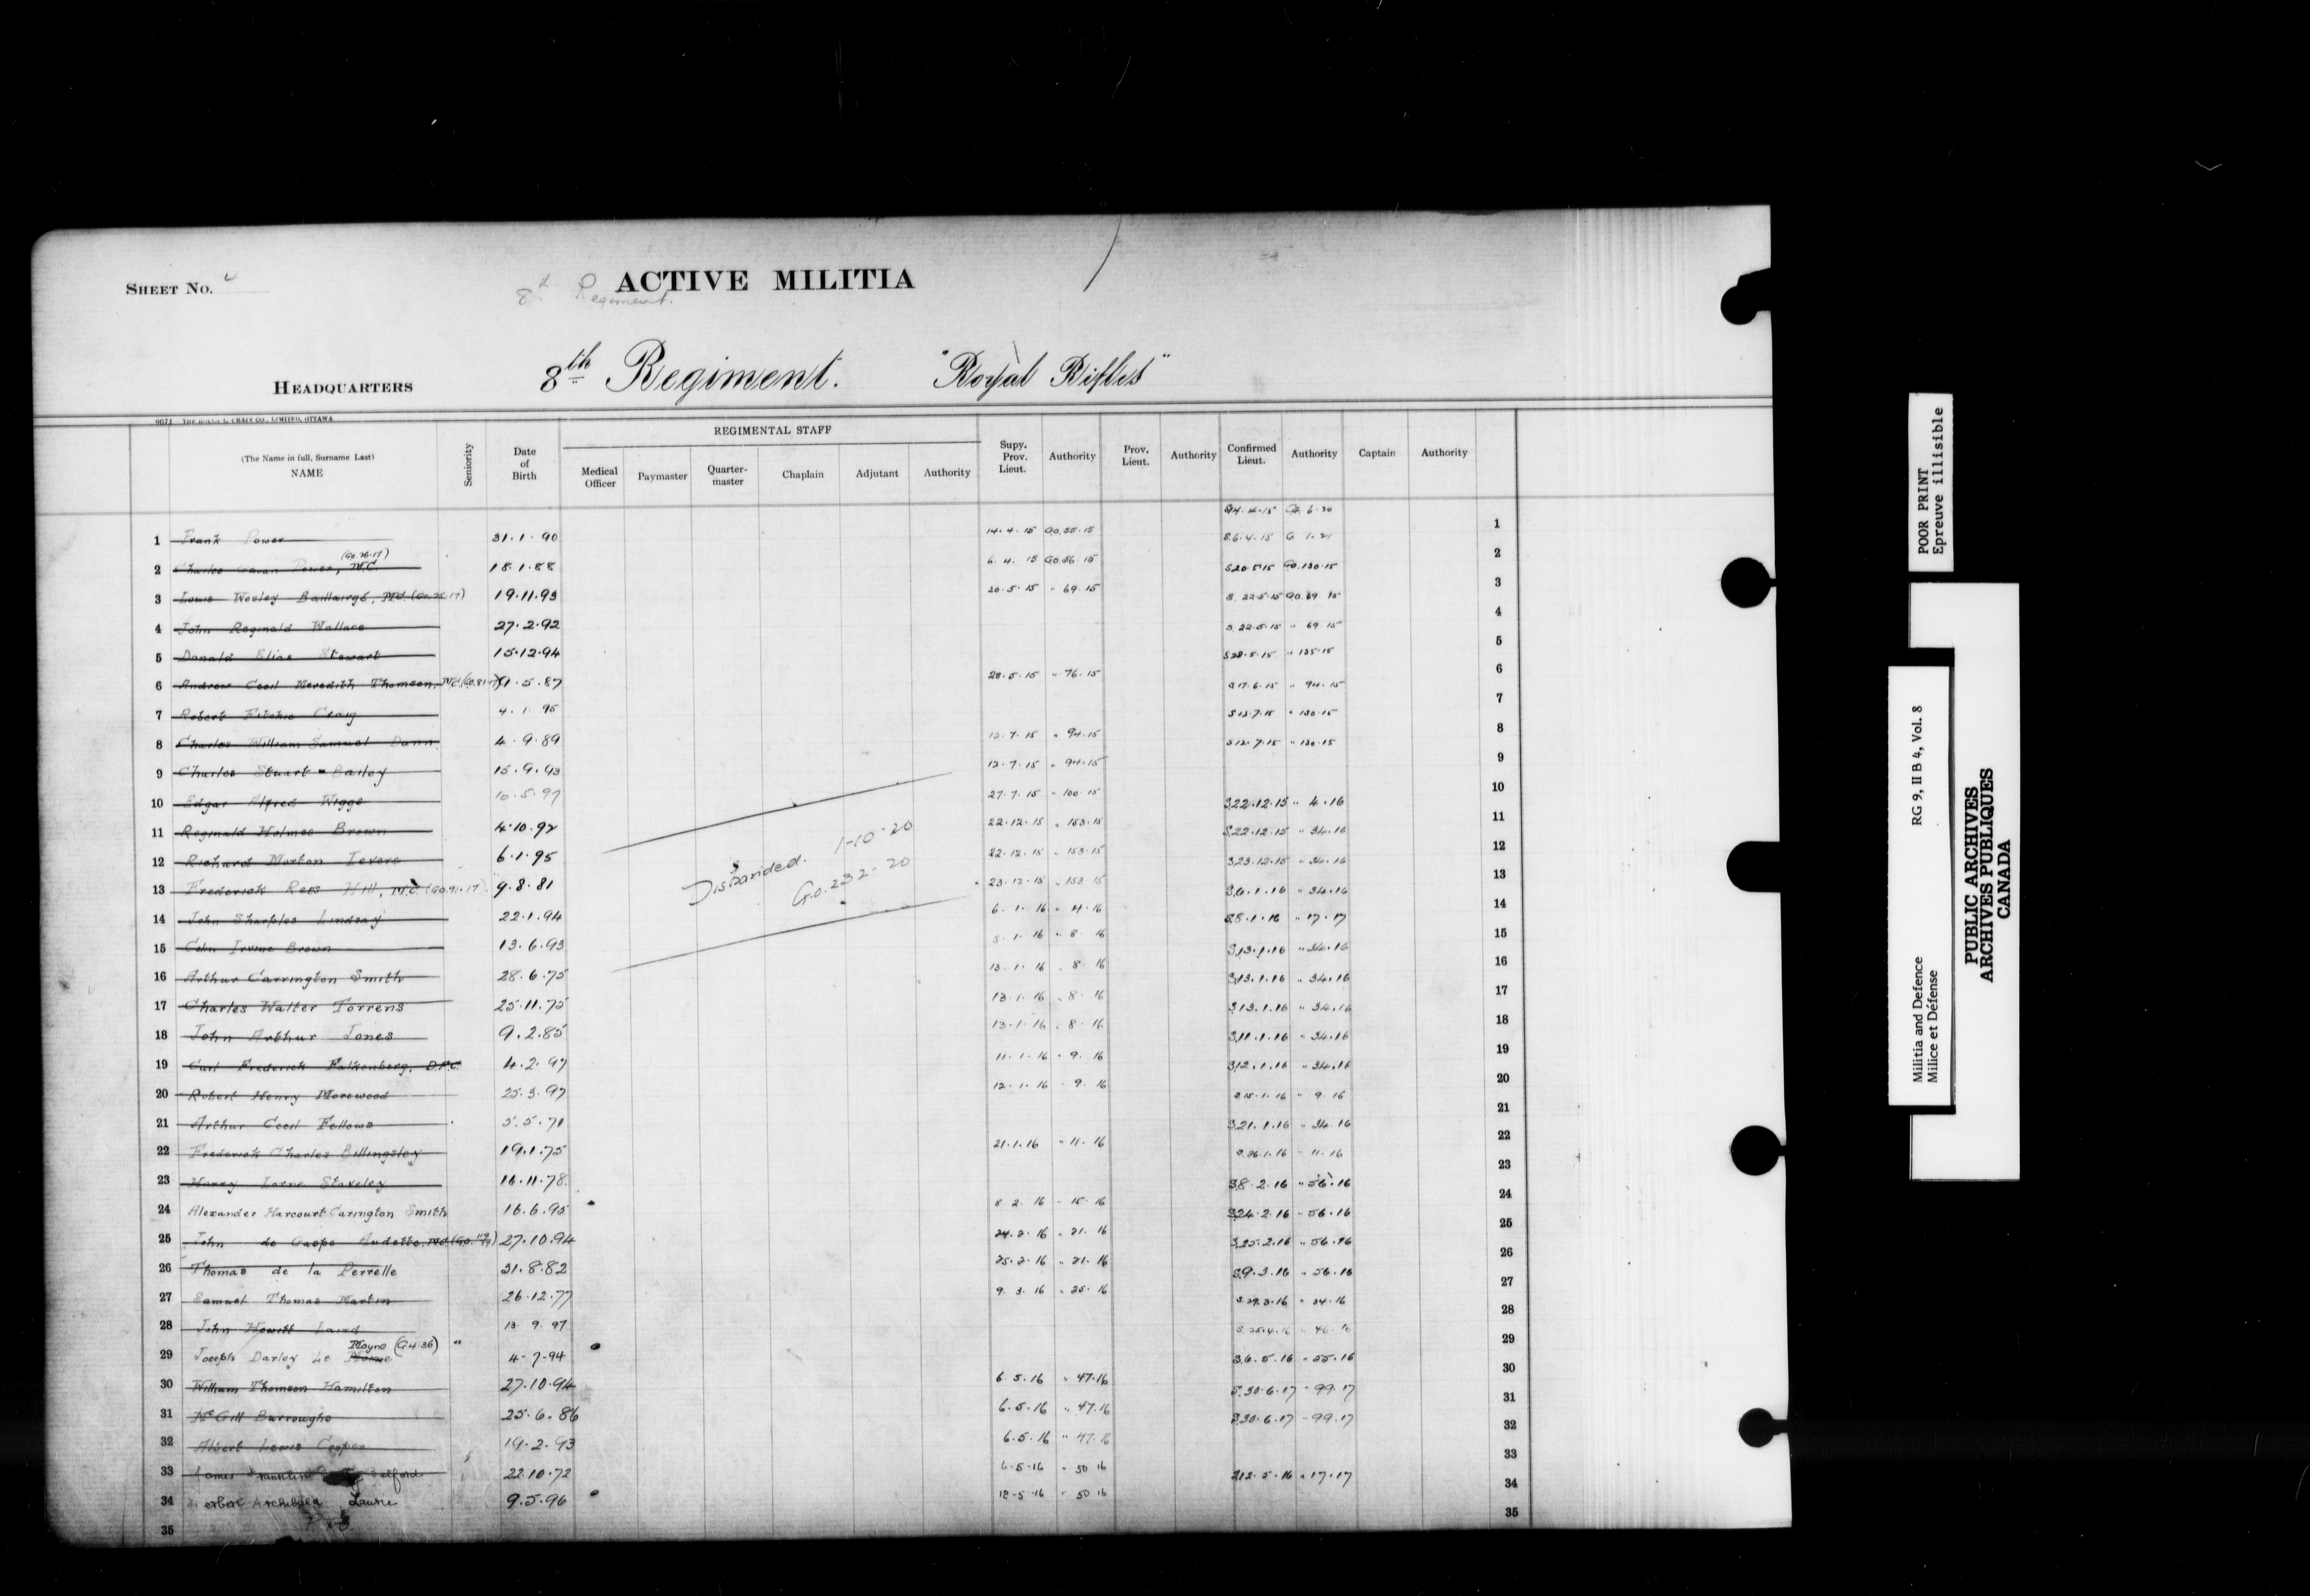 SHEET NO.
ACTIVE MILITIA
8th Regiment.
HEADQUARTERS 8th Regiment. "Royal Rifles"
LIMITED, OTTAWA
(The Name in full, Surname Last) NAME Seniority Date of Birth REGIMENTAL STAFF Medical Officer Paymaster Quarter-master Chaplain Adjutant Authority Supy. Prov. Lieut. Authority Prov. Lieut. Authority Confirmed Lieut. Authority Captain Authority
1 Frank Power 31.1.90 14.4.15 GO.55.15 1
(GO.26.17)
2 Charles Gavan Power, M.C. 18.1.88 6.4.15 GO.56.15 2
3 Louis Wesley Baillairgé, M.C. 19.11.93 20.5.15 " 69.15 S20.5.15 GO.130.15 3
4 John Reginald Wallace 27.2.92 S.22.5.15 GO.69.15 4
5 Donald Stewart 15.12.94 S.22.5.15 " 69.15 5
6 Andrew Cecil Meredith Thomson, M.C. 1.5.87 28.5.15 " 76.15 S28.5.15 " 135.15 6
7 Robert Ritchie Craig 4.1.95 S17.6.15 " 94.15 7
8 Charles William Samuel Dunn 4.9.89 12.7.15 " 94.15 S12.7.15 " 130.15 8
9 Charles Stuart-Bailey 15.9.93 12.7.15 " 94.15 S12.7.15 " 130.15 9
10 Edgar Alfred Wiggs 10.5.97 27.7.15 " 100.15 10
11 Reginald Holmes Brown 4.10.92 22.12.15 " 153.15 S.22.12.15 " 4.16 11
12 Richard Morton Ievers 6.1.95 22.12.15 " 153.15 S.22.12.15 " 34.16 12
Disbanded. 1-10-20
G.O. 232-20
13 Frederick Ross Hill, M.C. (GO.91.17) 9.8.81 23.12.15 " 153.15 S.23.12.15 " 34.16 13
14 John Sharples Lindsay 22.1.94 6.1.16 " 4.16 S.6.1.16 " 34.16 14
15 Colin Irvine Brown 13.6.93 8.1.16 " 8.16 S.8.1.16 " 17.17 15
16 Arthur Carrington Smith 28.6.75 13.1.16 " 8.16 S.13.1.16 " 34.16 16
17 Charles Walter Torrens 25.11.75 13.1.16 " 8.16 S.13.1.16 " 34.16 17
18 John Arthur Jones 9.2.85 13.1.16 " 8.16 S.13.1.16 " 34.16 18
19 Carl Frederick Falkenberg, D.F.C. 4.2.97 11.1.16 " 9.16 S.11.1.16 " 34.16 19
20 Robert Henry Morewood 25.3.97 12.1.16 " 9.16 S.12.1.16 " 34.16 20
21 Arthur Cecil Fellows 5.5.71 S.15.1.16 " 9.16 21
22 Frederick Charles Billingsley 19.1.75 21.1.16 " 11.16 S.21.1.16 " 34.16 22
23 Harry Lorne Staveley 16.11.78 S.26.1.16 " 11.16 23
24 Alexander Harcourt Carington Smith 16.6.95 8.2.16 " 15.16 S.8.2.16 " 56.16 24
25 John de Gaspe Audette, M.C. 27.10.94 24.2.16 " 21.16 S.24.2.16 " 56.16 25
26 Thomas de la Perrelle 31.8.82 25.2.16 " 21.16 S.25.2.16 " 56.16 26
27 Samuel Thomas Martin 26.12.77 9.3.16 " 25.16 S.9.3.16 " 56.16 27
28 John Hewitt Laird 13.9.97 S.29.3.16 " 34.16 28
Mayne (G 4.36)
29 Joseph Darley Le Moine 4-7-94 S.25.4.16 " 46.16 29
30 William Thomson Hamilton 27.10.94 6.5.16 " 47.16 S.6.5.16 " 55.16 30
31 McGill Burroughs 25.6.86 6.5.16 " 47.16 S.30.6.17 " 99.17 31
32 Albert Lewis Cooper 19.2.93 6.5.16 " 47.16 S.30.6.17 " 99.17 32
33 James Franklin Belford 22.10.72 6-5-16 " 50 16 33
34 Archibald Laurie 9.5.96 12-5-16 " 50 16 S12.5.16 " 17.17 34
35 35
POOR PRINT
Epreuve illisible
Militia and Defence RG 9, II B 4, Vol. 8
Milice et Défense
PUBLIC ARCHIVES
ARCHIVES PUBLIQUES
CANADA